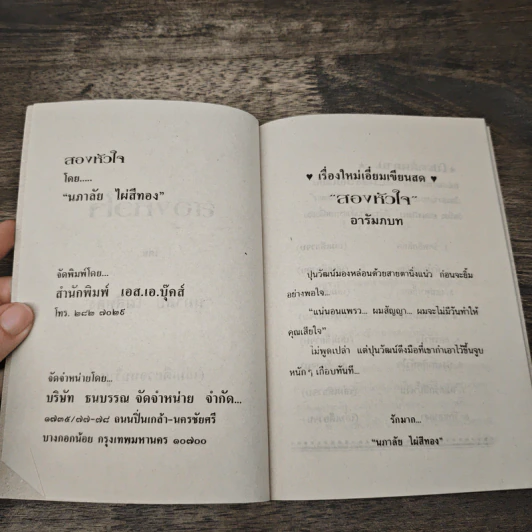 สองหัวใจ
โดย.....
"นภาลัย ไผ่สีทอง"
จัดพิมพ์โดย...
สำนักพิมพ์ เอส.เอ.บุ๊คส์
โทร. ๒๘๒ ๗๐๒๙
จัดจำหน่ายโดย...
บริษัท ธนบรรณ จัดจำหน่าย จำกัด...
๑๗๓๕/๗๗-๗๘ ถนนปิ่นเกล้า-นครชัยศรี
บางกอกน้อย กรุงเทพมหานคร ๑๐๗๐๐
♥ เรื่องใหม่เอี่ยมเขียนสด ♥
"สองหัวใจ"
อารัมภบท
ปุนวัฒน์มองหล่อนด้วยสายตานิ่งแน่ว ก่อนจะยิ้ม
อย่างพอใจ...
"แน่นอนแพรว... ผมสัญญา... ผมจะไม่มีวันทำให้
คุณเสียใจ"
ไม่พูดเปล่า แต่ปุนวัฒน์ดึงมือที่เขากำเอาไว้ขึ้นจูบ
หนักๆ เกือบทันที...
รักมาก...
"นภาลัย ไผ่สีทอง"